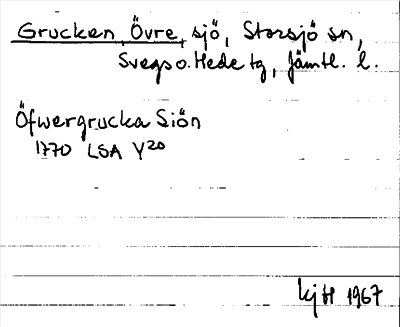 Grucken, Övre, sjö, Storsjö sn,
Svegs o. Hede tg, Jämtl. l.
Öfwergrucka Siön
1770 LSA Y20
kjH 1967